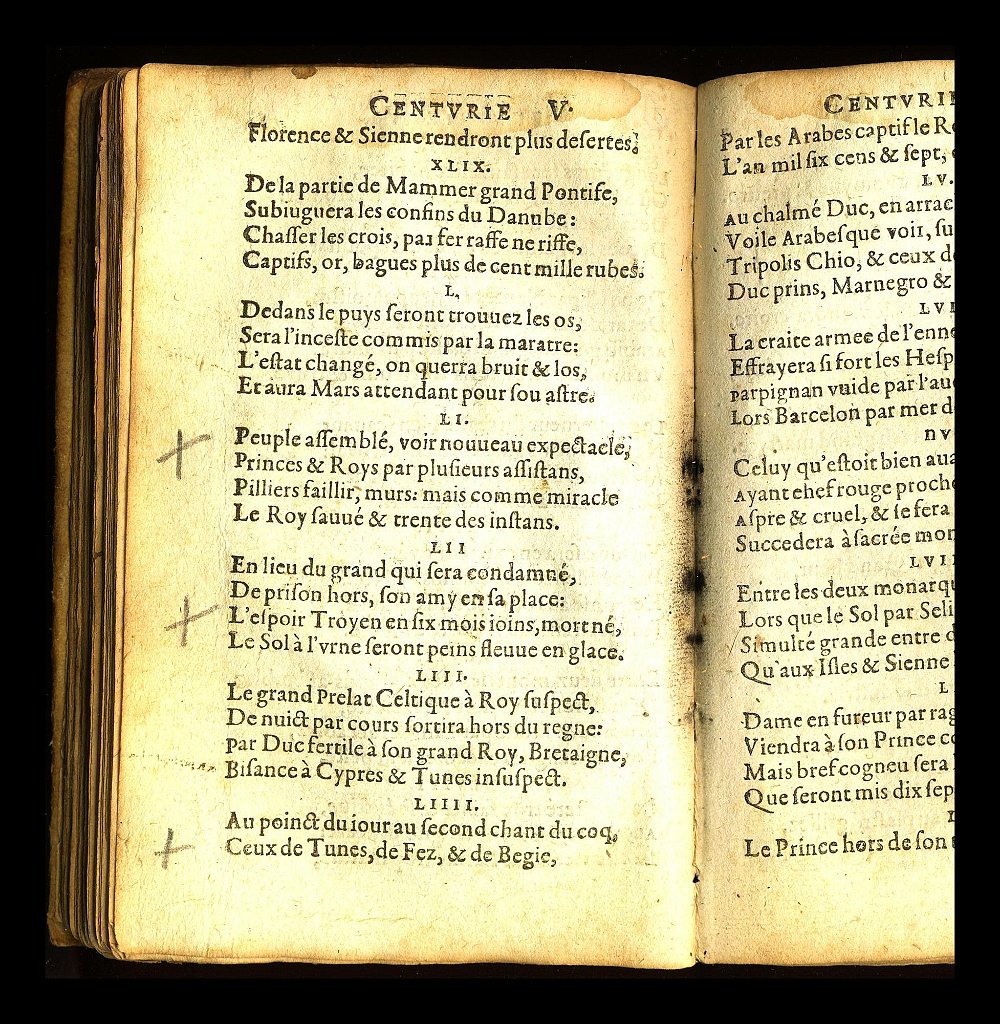 CENTVRIE V.
Florence & Sienne rendront plus desertes.
XLIX.
De la partie de Mammer grand Pontife,
Subiuguera les confins du Danube:
Chaſſer les crois, par fer raffe ne riffe,
Captifs, or, bagues plus de cent mille rubes.
L,
Dedans le puys ſeront trouuez les os,
Sera l'inceſte commis par la maratre:
L'eſtat changé, on querra bruit & los,
Et aura Mars attendant pour ſou aſtre.
LI.
Peuple aſſemblé, voir nouueau expectacle,
Princes & Roys par pluſieurs aſſiſtans,
Pilliers faillir, murs: mais comme miracle
Le Roy ſauué & trente des inſtans.
LII
En lieu du grand qui ſera condamné,
De priſon hors, ſon amy en ſa place:
L'eſpoir Troyen en ſix mois ioins, mort né,
Le Sol à l'vrne ſeront peins fleuue en glace.
LIII.
Le grand Prelat Celtique à Roy ſuſpect,
De nuict par cours ſortira hors du regne:
Par Duc fertile à ſon grand Roy, Bretaigne,
Biſance à Cypres & Tunes inſuſpect.
LIIII.
Au poinct du iour au ſecond chant du coq,
Ceux de Tunes, de Fez, & de Begie,
CENTVRI
Par les Arabes captif le R
L'an mil ſix cens & ſept,
LV.
Au chalmé Duc, en arrac
Voile Arabeſque voir, ſu
Tripolis Chio, & ceux d
Duc prins, Marnegro &
LVI
La craite armee de l'enne
Effrayera ſi fort les Heſp
Parpignan vuide par l'au
Lors Barcelon par mer d
nv
Celuy qu'eſtoit bien aua
Ayant chef rouge proche
Aſpre & cruel, & ſe fera
Succedera à ſacrée mon
LVII
Entre les deux monarqu
Lors que le Sol par Seli
Simulté grande entre d
Qu'aux Iſles & Sienne
L
Dame en fureur par rag
Viendra à ſon Prince co
Mais bref cogneu ſera
Que ſeront mis dix ſep
Le Prince hors de ſon